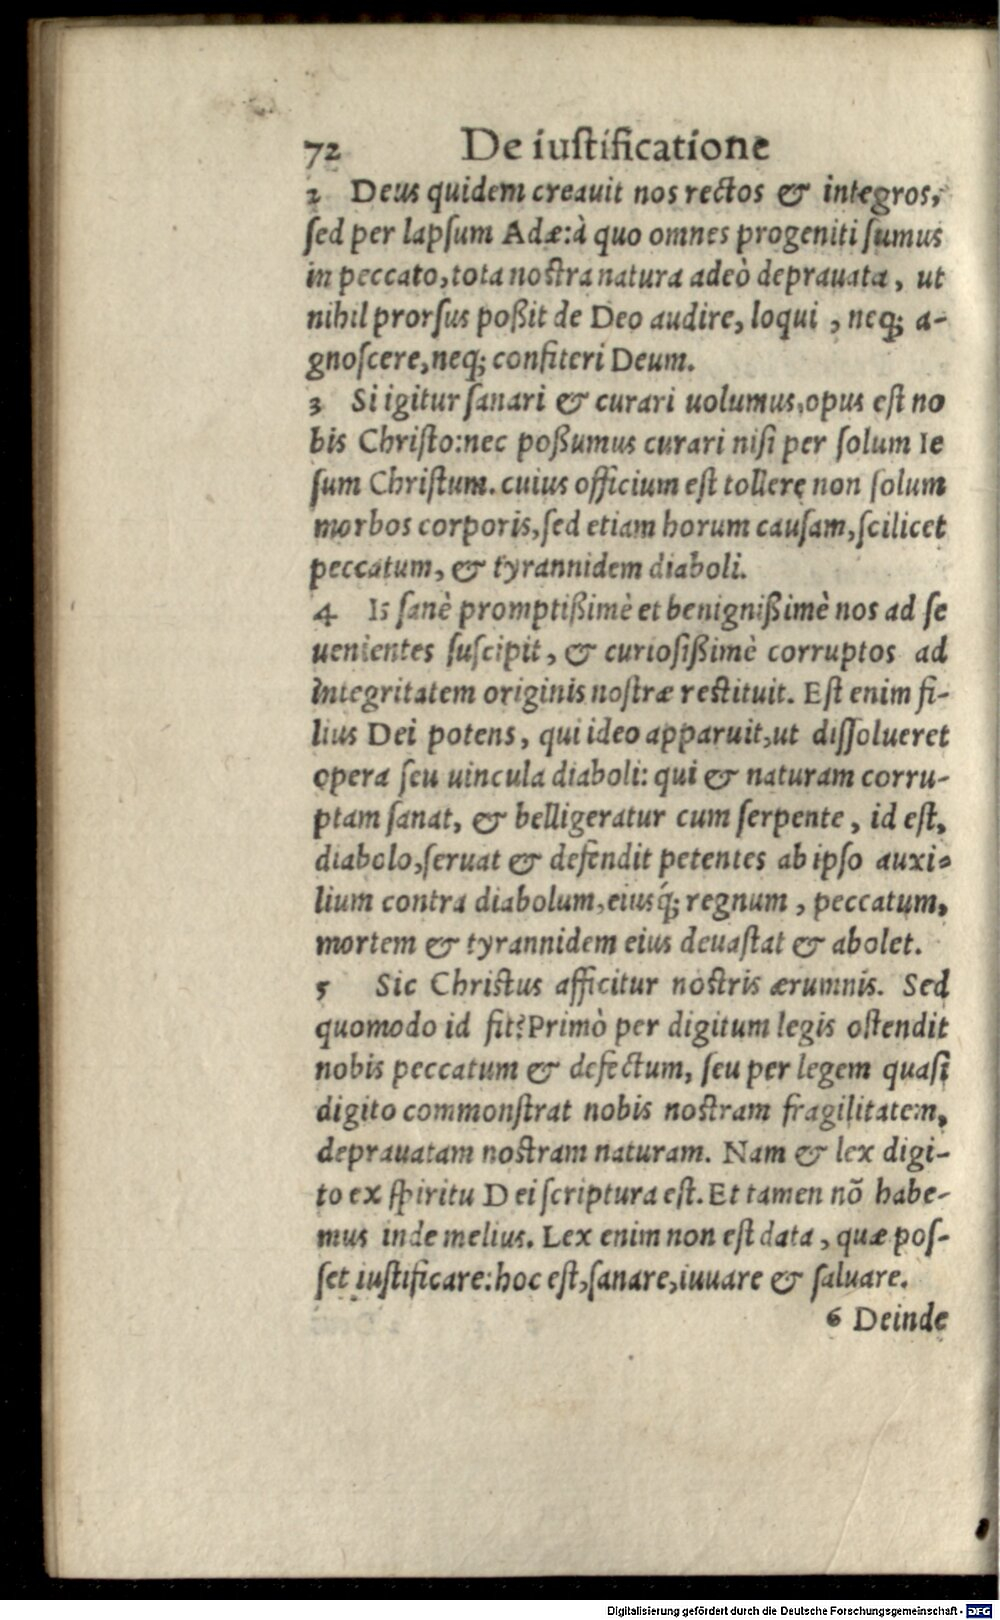 72 De iustificatione
2 Deus quidem creauit nos rectos & integros,
sed per lapsum Adæ:à quo omnes progeniti sumus
in peccato,tota nostra natura adeò deprauata, ut
nihil prorsus poßit de Deo audire, loqui, neq; a-
gnoscere,neq; confiteri Deum.
3 Si igitur sanari & curari uolumus,opus est no
bis Christo:nec poßumus curari nisi per solum Ie
sum Christum. cuius officium est tollere non solum
morbos corporis,sed etiam horum causam,scilicet
peccatum, & tyrannidem diaboli.
4 Is sanè promptißimè et benignißimè nos ad se
uenientes suscipit, & curiosißimè corruptos ad
integritatem originis nostræ restituit. Est enim fi-
lius Dei potens, qui ideo apparuit,ut dissolueret
opera seu uincula diaboli: qui & naturam corru-
ptam sanat, & belligeratur cum serpente, id est,
diabolo,seruat & defendit petentes ab ipso auxi-
lium contra diabolum,eiusq́; regnum, peccatum,
mortem & tyrannidem eius deuastat & abolet.
5 Sic Christus afficitur nostris ærumnis. Sed
quomodo id fit?Primò per digitum legis ostendit
nobis peccatum & defectum, seu per legem quasi
digito commonstrat nobis nostram fragilitatem,
deprauatam nostram naturam. Nam & lex digi-
to ex spiritu Dei scriptura est. Et tamen nō habe-
mus inde melius. Lex enim non est data, quæ pos-
set iustificare:hoc est,sanare,iuuare & saluare.
6 Deinde
Digitalisierung gefördert durch die Deutsche Forschungsgemeinschaft - DFG